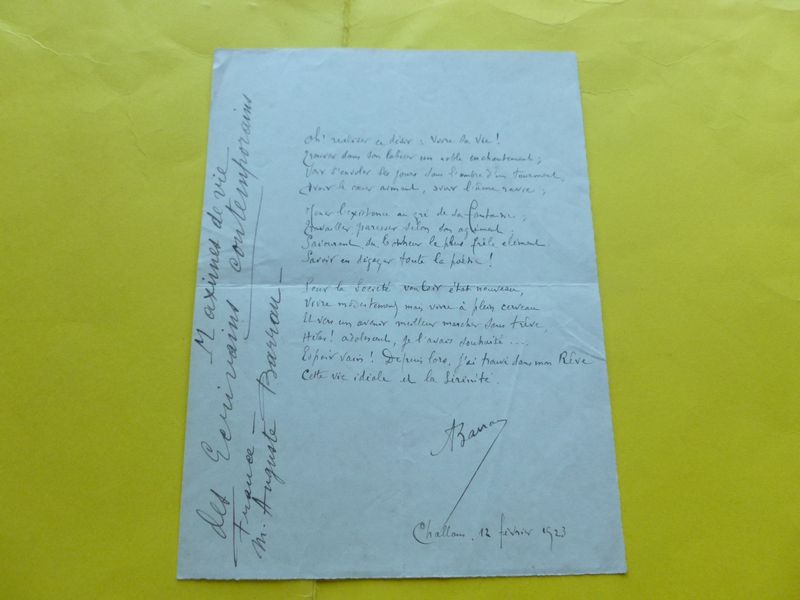 Maximes de vie
des Ecrivains contemporains
France —
M. Auguste Barrau —
Oh! réaliser ce désir : vivre sa vie!
Trouver dans son labeur un noble enchantement;
Voir s'envoler ses jours dans l'ombre d'un tourment,
Avoir le cœur aimant, avoir l'âme ravie;
Mener l'existence au gré de sa fantaisie;
Travailler, paresser selon son agrément,
Savourant du bonheur le plus frêle élément
Savoir en dégager toute la poésie!
Pour la Société vouloir état nouveau,
Vivre modestement, mais vivre à plein cerveau
Et vers un avenir meilleur marcher sans trêve,
Hélas! adolescent, je l'avais souhaité ....
Espoir vain! Depuis lors, j'ai trouvé dans mon Rêve
Cette vie idéale et la Sérénité.
ABarrau
Challans, 12 février 1923